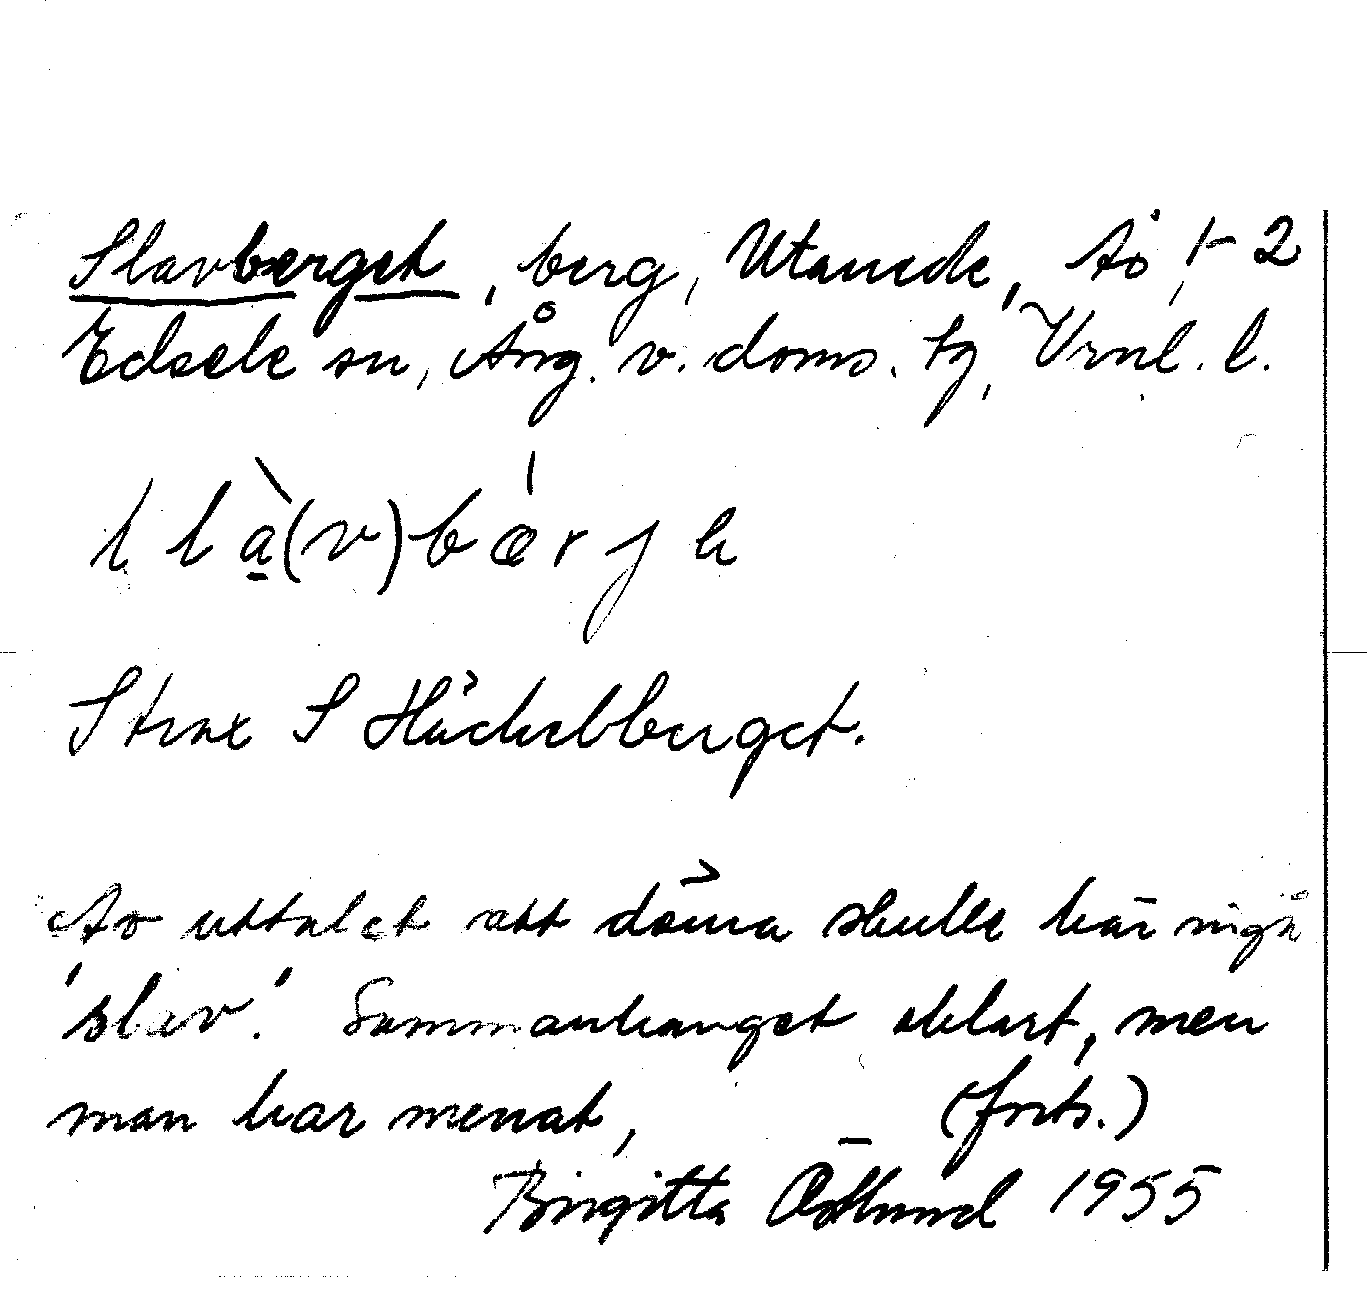 Slavberget, berg, Utanede, Aö, 1-2
Edsele sn, Ång. v. doms. tg, Vrnl. l.
l l à(v) b æ r j e
Strax S Häckelberget.
Av uttalet att döma skulle här ingå
'slav'. Sammanhanget oklart, men
man har menat, (forts.)
Birgitta Östlund 1955